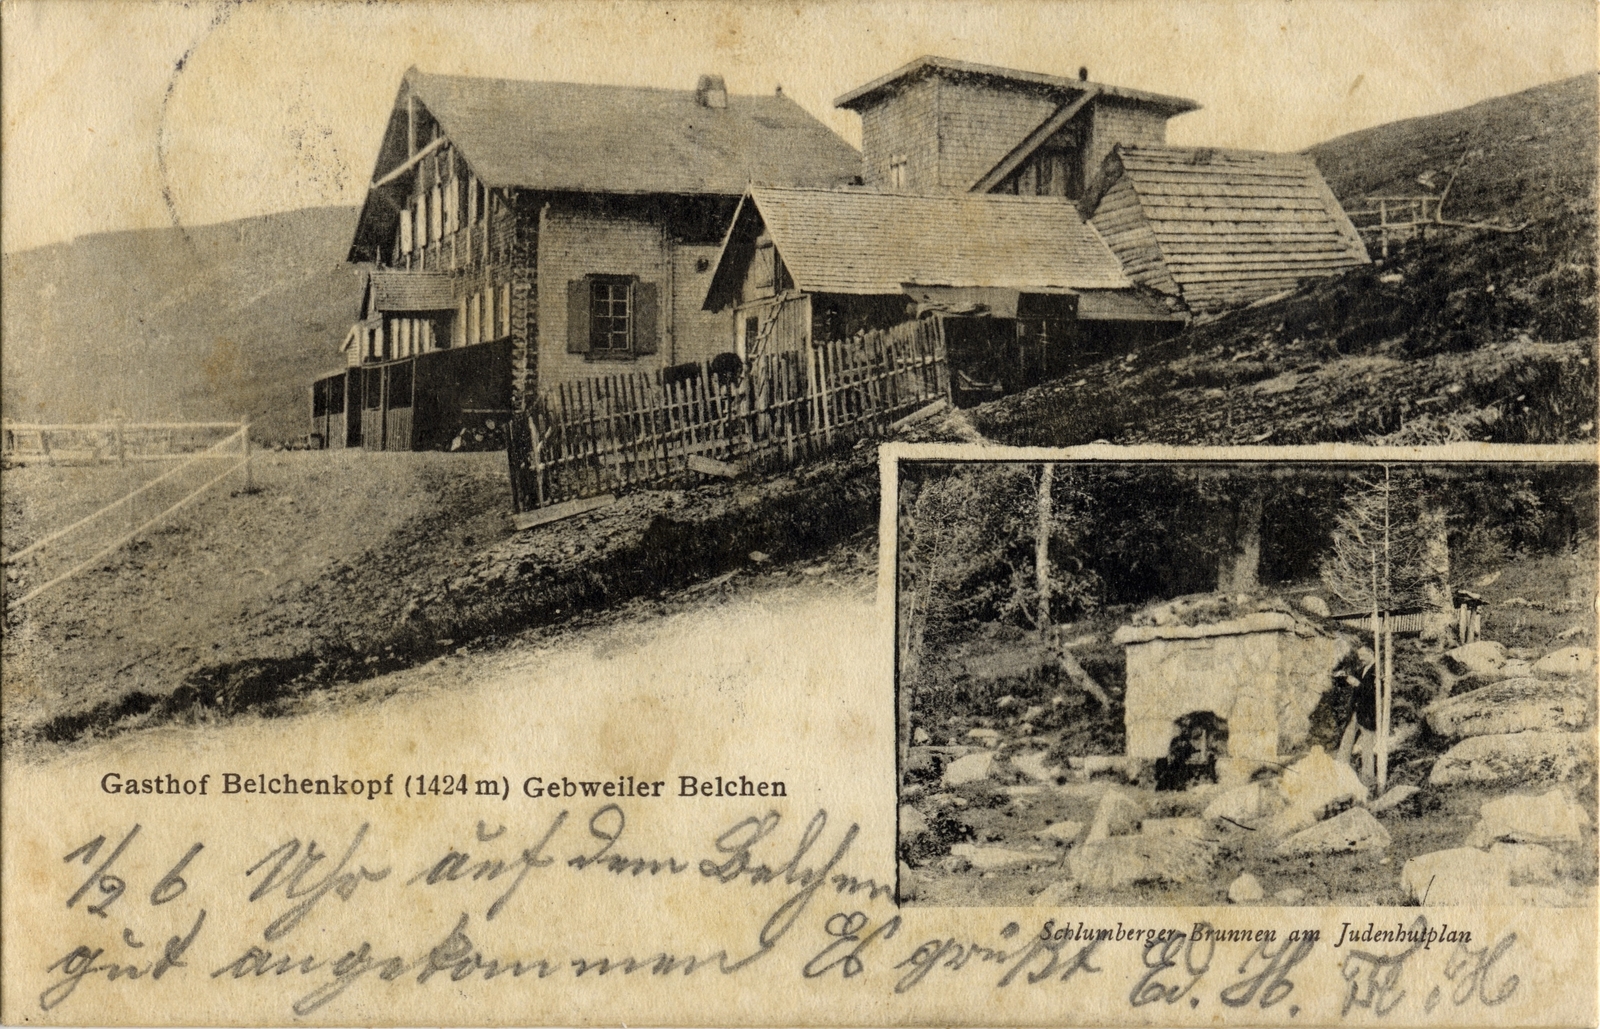 Gasthof Belchenkopf (1424 m) Gebweiler Belchen
Schlumberger-Brunnen am Judenhutplan
1/2 6 Uhr auf dem Belchen
gut angekommen Es grüßt Ed. H.